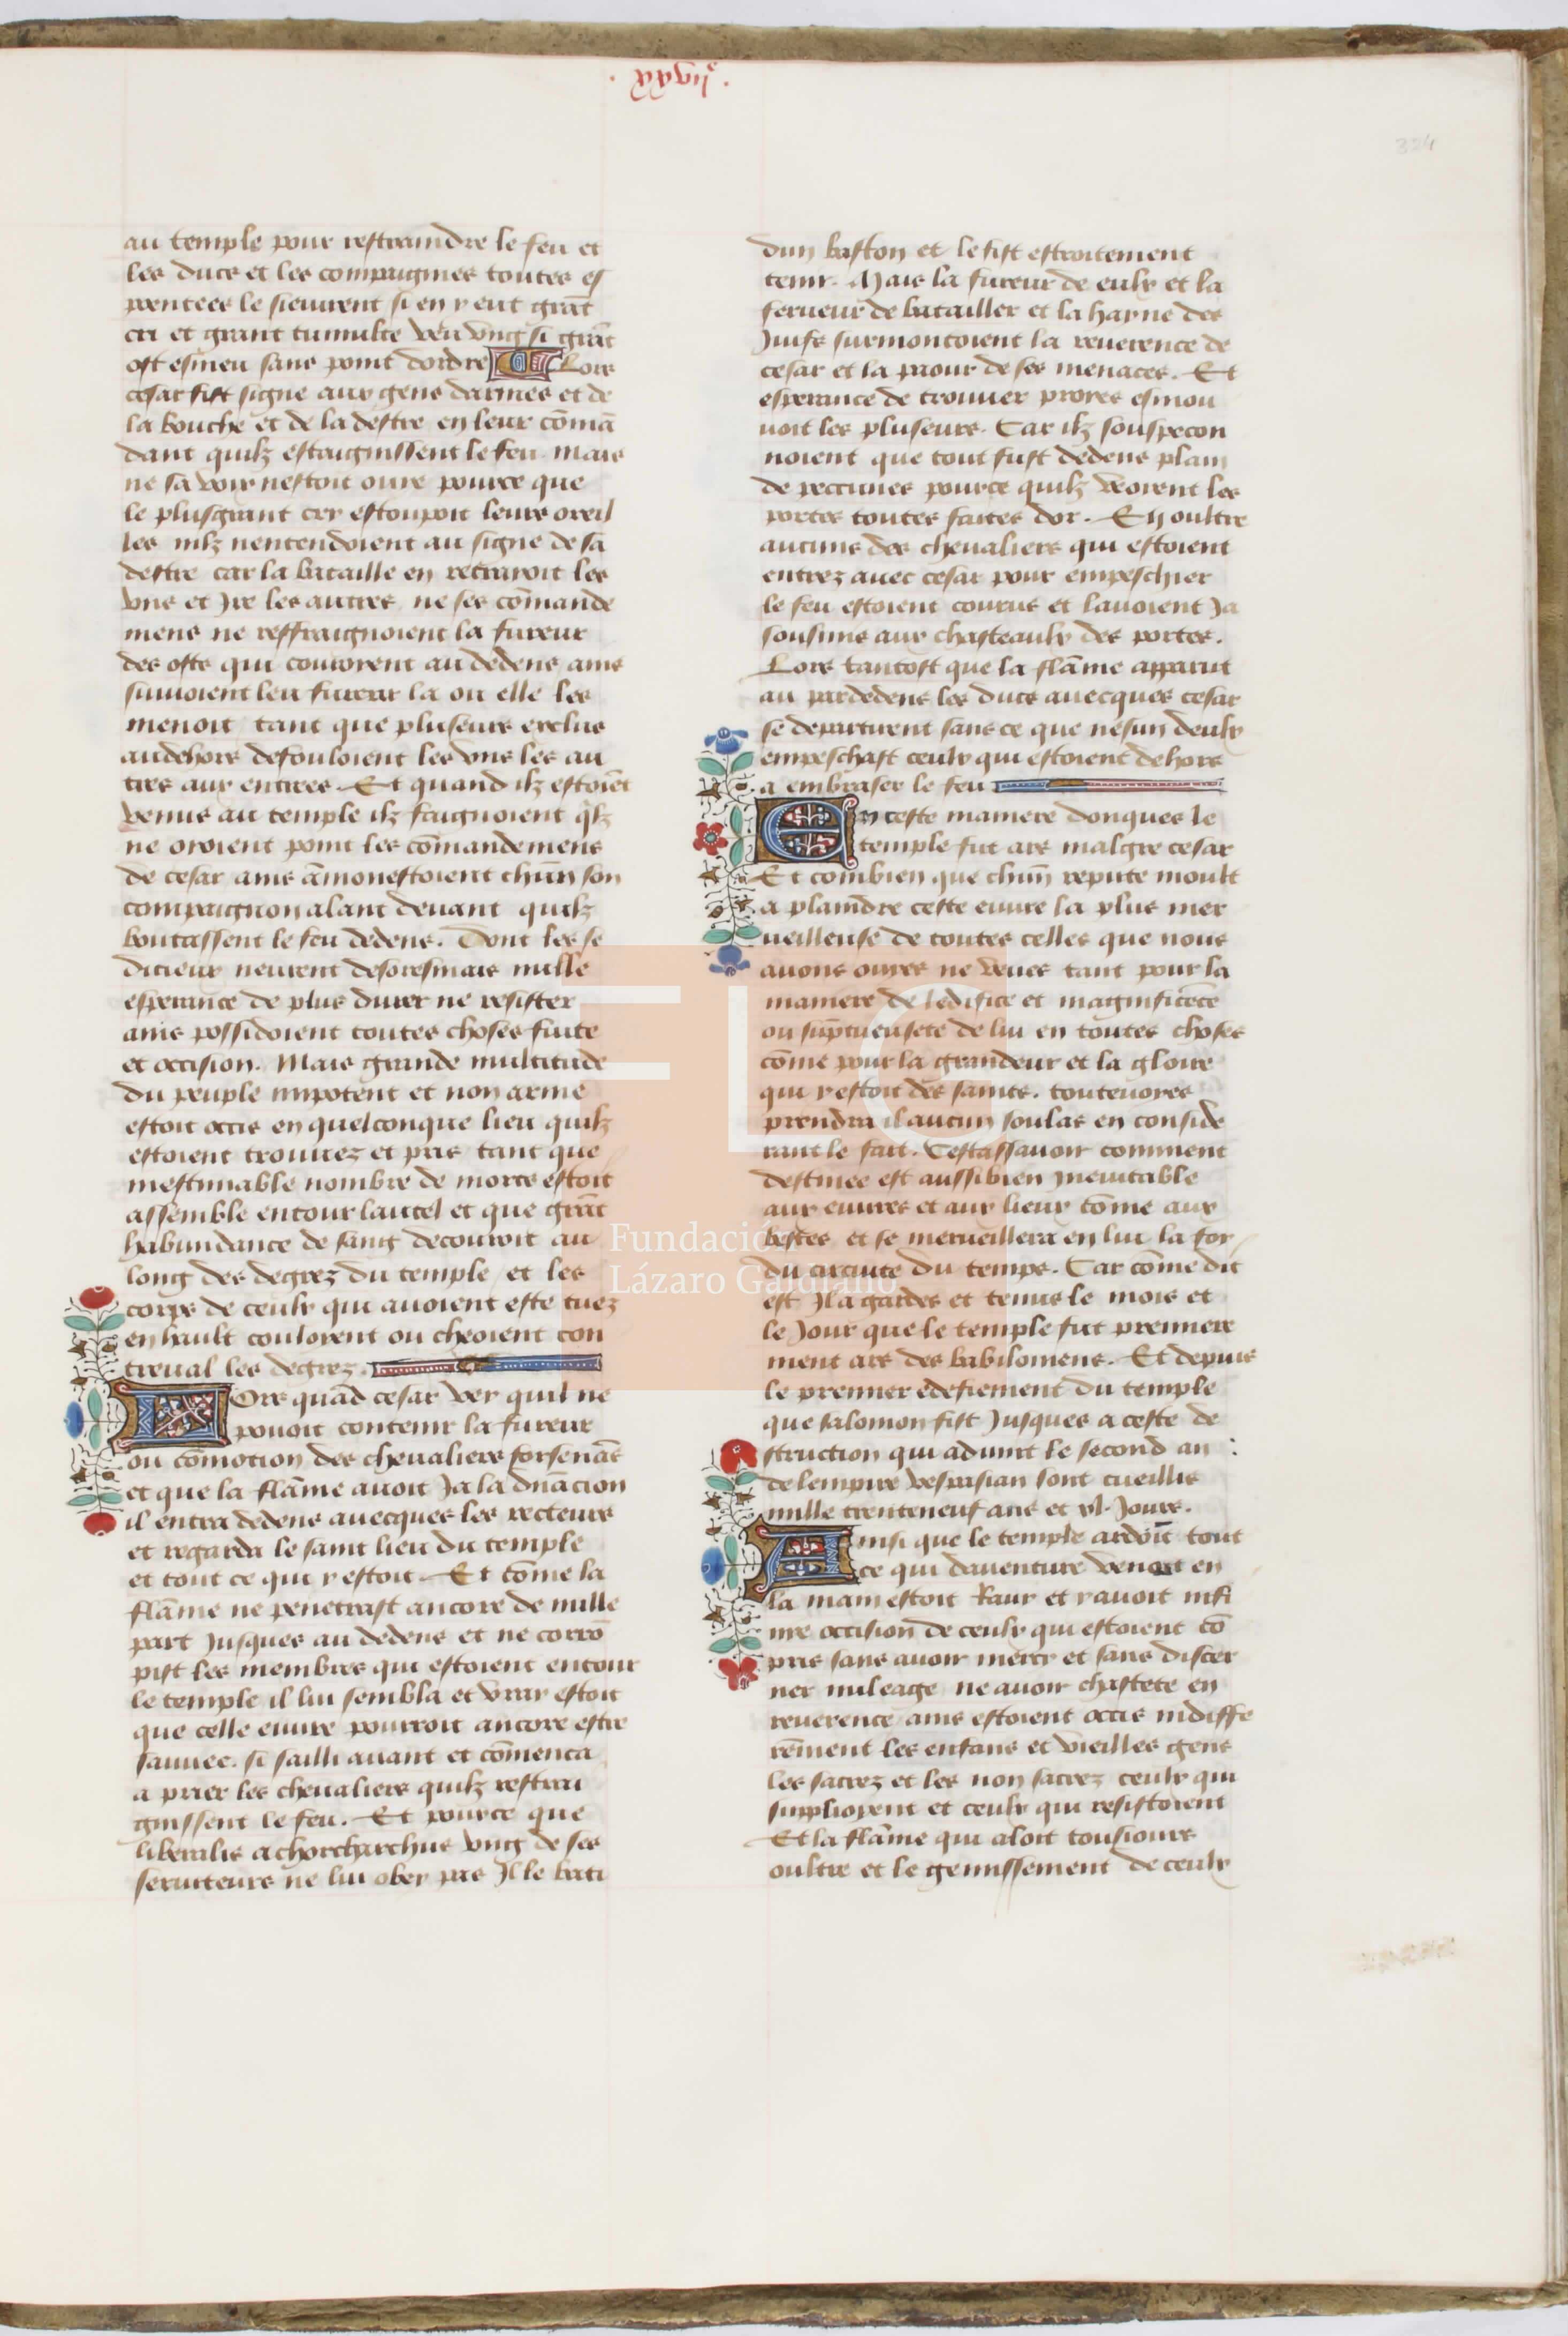 324
au temple pour restraindre le feu et
les ducs et les compaignies toutes es
pentees le sieuirent si en y eut grãt
cri et grant tumulte veu vng si grãt
ost esmeu sans point dordre Lors
cesar fist signe aux gens darmes et de
la bouche et de la destre en leur cõmã
dant quilz estaignissent le feu mais
ne sa voix nestoit oure pource que
le plusgrant cry estoupoit leurs oreil
les nilz nentendoient au signe de sa
destre car la bataille en retraioit les
vns et Ire les autres ne ses cõmande
mens ne reffraignoient la fureur
des ostz qui couroient au dedens ains
suiuoient leu fureur la ou elle les
menoit tant que pluseurs exclus
audehors defouloient les vns les au
tres aux entrees Et quand ilz estoiẽt
venus au temple ilz faignoient q̃lz
ne oioient point les cõmandemens
de cesar ains ãmonestoient chũn son
compaignon alant deuant quilz
boutassent le feu dedens. Dont les se
dicieux neurent desoresmais nulle
esperance de plus durer ne resister
ains possidoient toutes choses fuite
et occision. Mais grande multitude
du peuple impotent et non arme
estoit occis en quelconque lieu quilz
estoient trouuez et pris tant que
inestimable nombre de mors estoit
assemble entour lautel et que grãt
habundance de sang decouroit au
long des degrez du temple et les
corps de ceulx qui auoient este tuez
en hault couloient ou cheoient con
treual les degrez.
Lors quãd cesar vey quil ne
pouoit contenir la fureur
ou cõmotion des chevaliers forsenãs
et que la flãme auoit Ja la dñacion
il entra dedens auecques les recteurs
et regarda le saint lieu du temple
et tout ce qui y estoit. Et cõme la
flãme ne penetrast ancore de nulle
part Jusques au dedens et ne corrõ
pist les membres qui estoient entour
le temple il lui sembla et vray estoit
que celle euure pourroit ancore estre
sauuee. si sailli auant et cõmenca
a prier les chevaliers quilz restrai
gnissent le feu. Et pource que
liberalis achorcharchus vng de ses
seruiteurs ne lui obey pas Il le bati
dun baston et le fist estroitement
tenir. Mais la fureur de eulx et la
ferueur de batailler et la hayne des
Juifs surmontoient la reuerence de
cesar et la paour de ses menaces. Et
esperance de trouuer proyes esmou
uoit les pluseurs. Car ilz souspecon
noient que tout fust dedens plain
de peccunes pource quilz veoient les
portes toutes faites dor. En oultre
aucuns des chevaliers qui estoient
entrez auec cesar pour empeschier
le feu estoient courus et lauoient Ja
soubmis aux chasteaulx des portes.
Lors tantost que la flãme apparut
au pardedens les ducs auecques cesar
se departirent sans ce que nesun deulx
empeschast ceulx qui estoient dehors
a embraser le feu
En ceste maniere donques le
temple fut ars malgre cesar
Et combien que chũn repute moult
a plaindre ceste euure la plus mer
ueilleuse de toutes celles que nous
auons oyres ne veues tant pour la
maniere de ledifice et magnificẽce
ou sũptueusete de lui en toutes choses
cõme pour la grandeur et la gloire
qui y estoit des saints. toutevoyes
prendra il aucun soulas en conside
rant le fait. Cestassauoir comment
destinee est aussibien Ineuitable
aux euures et aux lieux cõme aux
bestes et se merueillera en lui la for
du circuite du temps. Car cõme dit
est Il a gardes et tenus le mois et
le Jour que le temple fut premiere
ment ars des babiloniens. Et depuis
le premier edefiement du temple
que salomon fist Jusques a ceste de
struction qui aduint le second an
de lempire vespasian sont cueillis
mille trenteneuf ans et xl. Jours.
Ainsi que le temple ardoit tout
ce qui dauenture venoit en
la main estoit Rauy et y auoit infi
nie occision de ceulx qui estoient cõ
pris sans auoir mercy et sans discer
ner nul eage ne auoir chastete en
reuerence ains estoient occis indiffe
rẽment les enfans et vieilles gens
les sacrez et les non sacrez ceulx qui
supplioyent et ceulx qui resistoient
Et la flãme qui aloit tousiours
oultre et le gemissement de ceulx
Fundación
Lázaro Galdiano